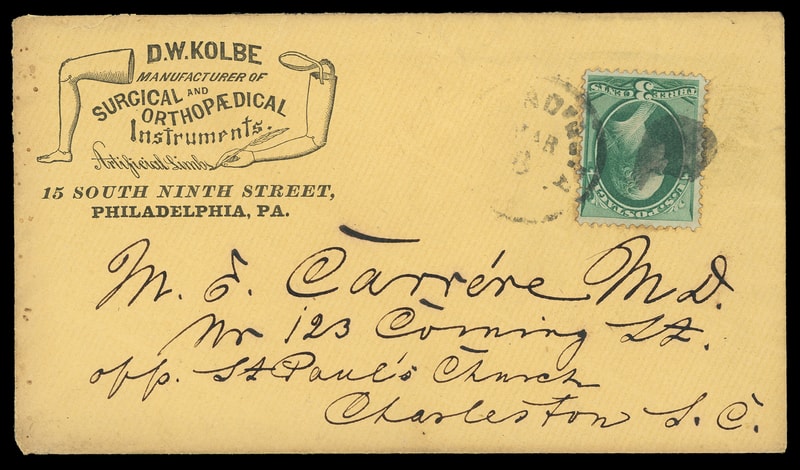 D.W. KOLBE
MANUFACTURER OF
SURGICAL AND
ORTHOPÆDICAL
Instruments.
Artificial Limbs
15 SOUTH NINTH STREET,
PHILADELPHIA, PA.
THREE 3 CENTS
U.S. POSTAGE
MAR
M. E. Carrére M.D.
Nr 123 Coming St.
opp. St Paul's Church
Charleston S. C.